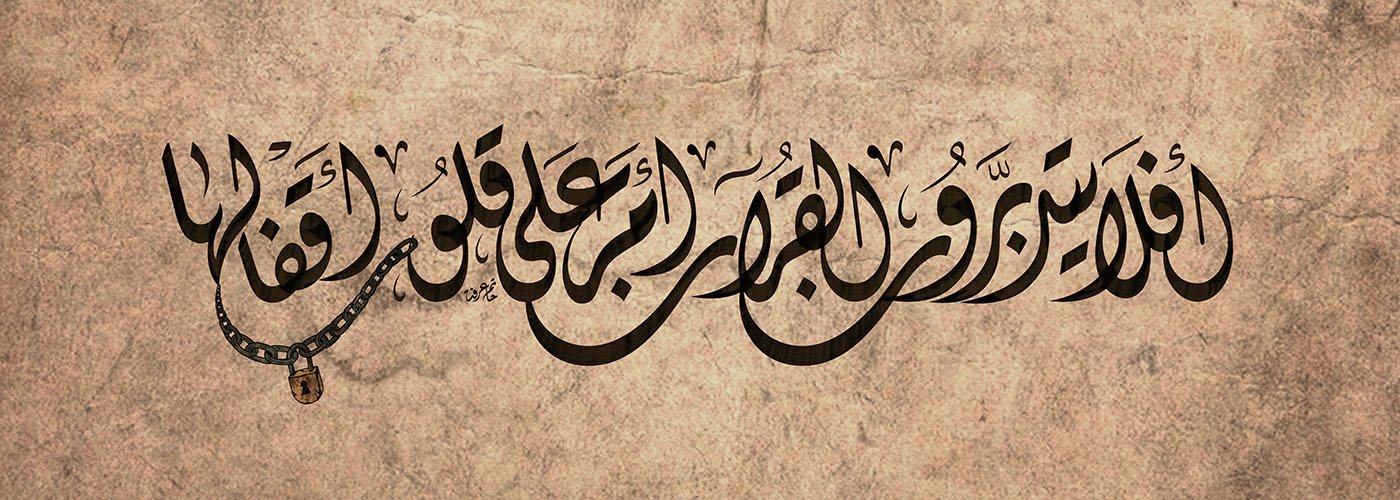 أفلا يتدبرون القرآن أم على قلوب أقفالها